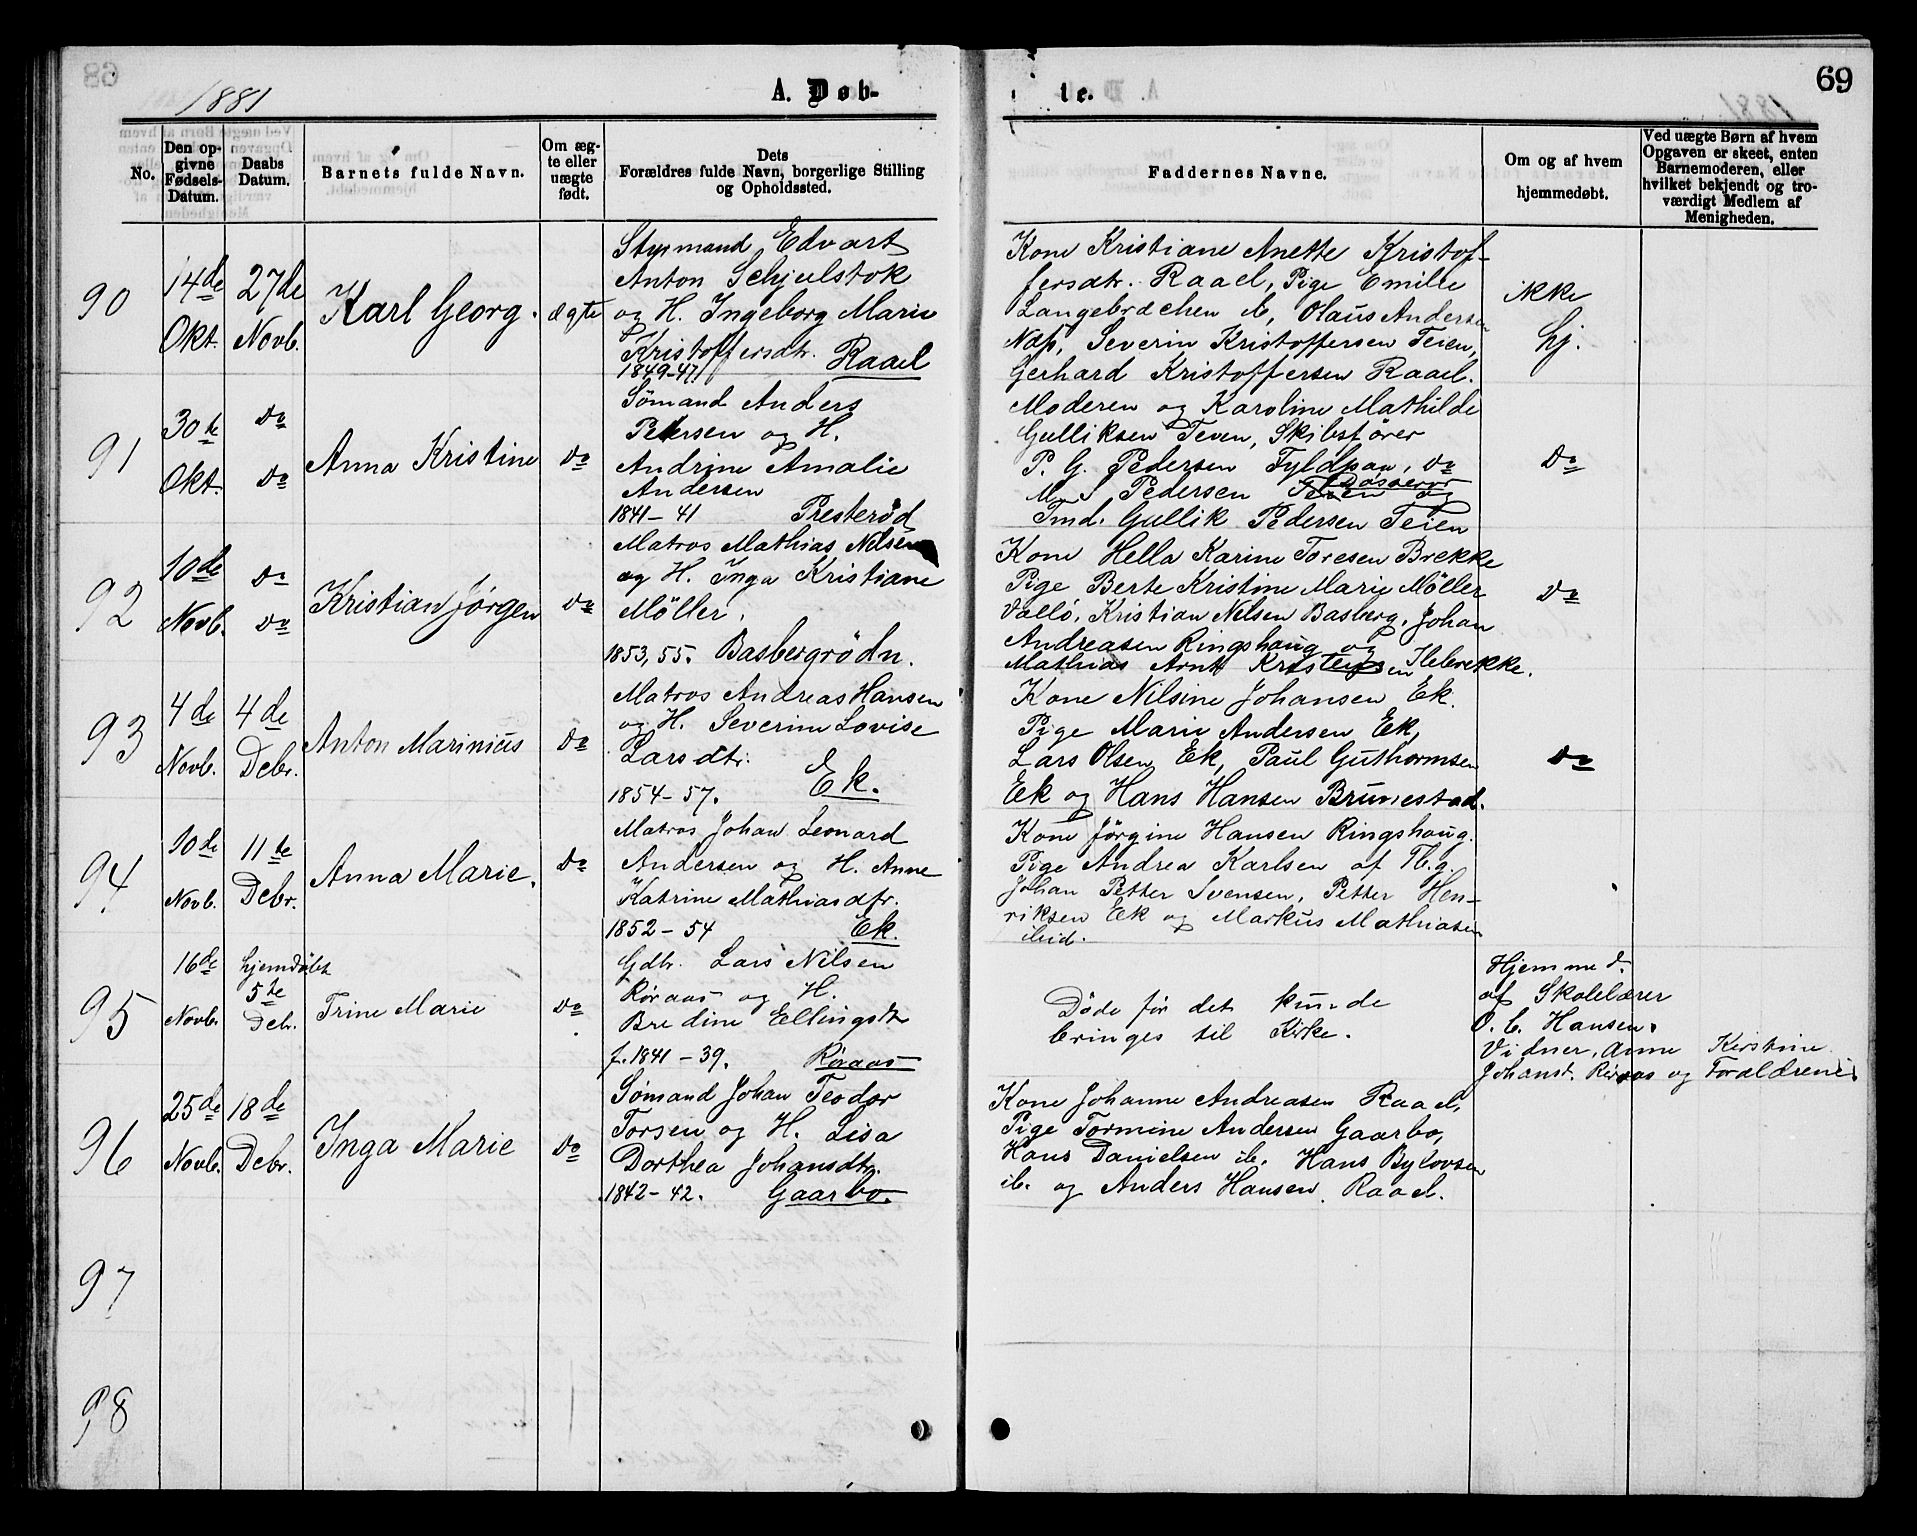 69
1881
A. Døb-
te.
No.
Den op-
givne
Fødsels-
Datum.
Daabs
Datum.
Barnets fulde Navn.
Om æg-
te eller
uægte
født.
Dets
Forældres fulde Navn, borgerlige Stilling
og Opholdssted.
Faddernes Navne.
Om og af hvem
hjemmedøbt.
Ved uægte Børn af hvem
Opgaven er skeet, enten
Barnemoderen, eller
hvilket bekjendt og tro-
værdigt Medlem af
Menigheden.
90
14de
Okt.
27de
Novb.
Karl Georg.
ægte
Styrmand Edvart
Anton Schjelstok
og H. Ingeborg Marie
Kristoffersdtr.
1849-47 Raael
Kone Kristiane Anette Kristof-
fersdtr. Raael, Pige Emilie
Langebrechen ib, Olaus Andersen
Næs, Severin Kristoffersen Teien,
Gerhard Kristoffersen Raael.
ikke
hj.
91
30te
Okt.
do
do
Anna Kristine
do
Sömand Anders
Petersen og H.
Andrine Amalie
Andersen
1841-41 Presteröd
Moderen og Karoline Mathilde
Gulliksen Teven, Skibsförer
P. G. Pedersen Fyldpaa, do
M. S Pedersen Teien og
Tmd. Gullik Pedersen Teien
do
92
10de
Novb.
do
do
Kristian Jörgen
do
Matros Mathias Nilsen
og H. Inga Kristiane
Möller.
1853, 55. Basbergrödn.
Kone Hella Karine Toresen Brekke
Pige Berte Kristine Marie Möller
Vallö, Kristian Nilsen Basberg, Johan
Andreasen Ringshaug og
Mathias Arnt Kristensen Ilebrekke.
do
93
4de
Novb.
4de
Debr.
Anton Marinius
do
Matros Andreas Hansen
og H. Severine Lovise
Larsdtr.
1854-57. Ek.
Kone Nilsine Johansen Ek.
Pige Marie Andersen Ek,
Lars Olsen Ek, Paul Guthormsen
Ek og Hans Hansen Brunestad.
do
94
10de
Novb.
11te
Debr.
Anna Marie.
do
Matros Johan Leonard
Andersen og H. Anne
Katrine Mathiasdtr.
1852-54 Ek.
Kone Jörgine Hansen Ringshaug.
Pige Andrea Karlsen af Tbg.
Johan Petter Svensen, Petter Hen-
riksen Ek og Markus Mathiasen
ibid.
95
16de
Novb.
hjemdöbt
5te
Deb.
Trine Marie
do
Gdbr. Lars Nilsen
Röraas og H.
Bredine Ellingsdt
f. 1841-39. Röraas
Döde för det kunde
bringes til Kirke.
Hjemme d.
af Skolelærer
O. C. Hansen.
Vidner, Anne Kirstine
Johansd. Röraas og Forældrene.
96
25de
Novb.
18de
Debr.
Inga Marie
do
Sömand Johan Teodor
Torsen og H. Lisa
Dorthea Johansdtr.
1842-42. Gaarbo.
Kone Johanne Andreasen Raael,
Pige Tormine Andersen Gaarbo,
Hans Danielsen ib. Hans Bylovsen
ib. og Anders Hansen, Raael.
97
98